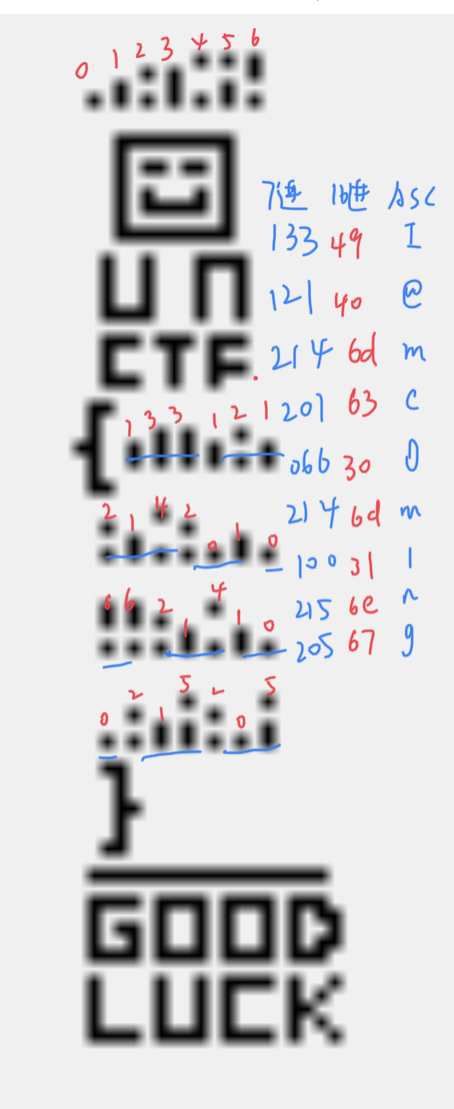 0 1 2 3 4 5 6
UN
CTF
{ 1 3 3 1 2 1
2 1 4 2 0 1 0
6 6 2 1 4 1 0
0 2 1 5 2 0 5
}
GOOD
LUCK
7进 16进 ASC
133 49 I
121 40 @
214 6d m
201 63 c
066 30 0
214 6d m
100 31 1
215 6e n
205 67 g